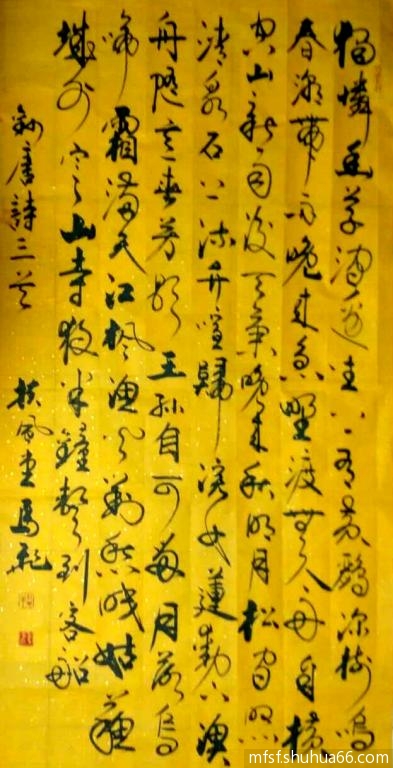 獨憐幽草澗邊生上有黃鸝深樹鳴
春潮帶雨晚來急野渡無人舟自橫
空山新雨後天氣晚來秋明月松間照
清泉石上流竹喧歸浣女蓮動下漁
舟隨意春芳歇王孫自可留月落烏
啼霜滿天江楓漁火對愁眠姑蘇
城外寒山寺夜半鐘聲到客船
錄唐詩三首 扶風堂馬
mfsf.shuhua66.com